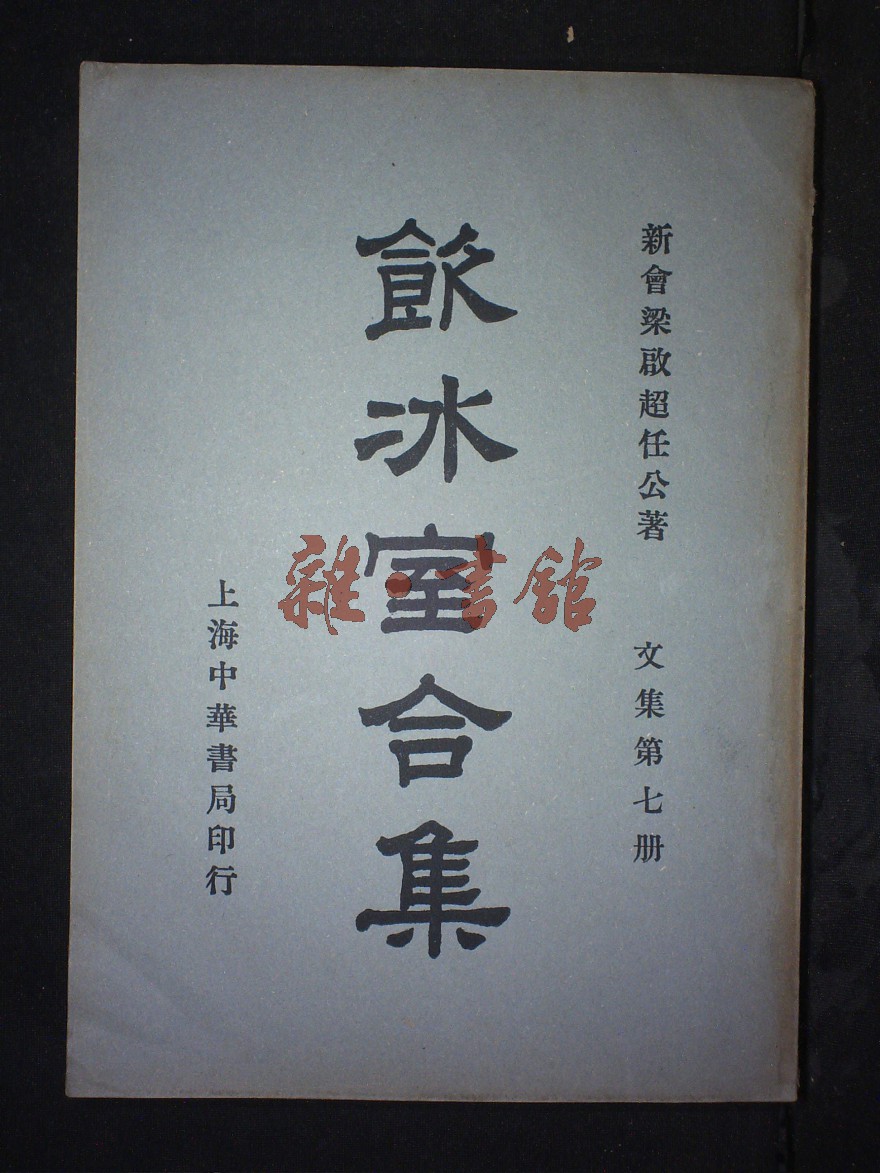 新會梁啟超任公著
文集第七册
飲冰室合集
上海中華書局印行
雜·書館